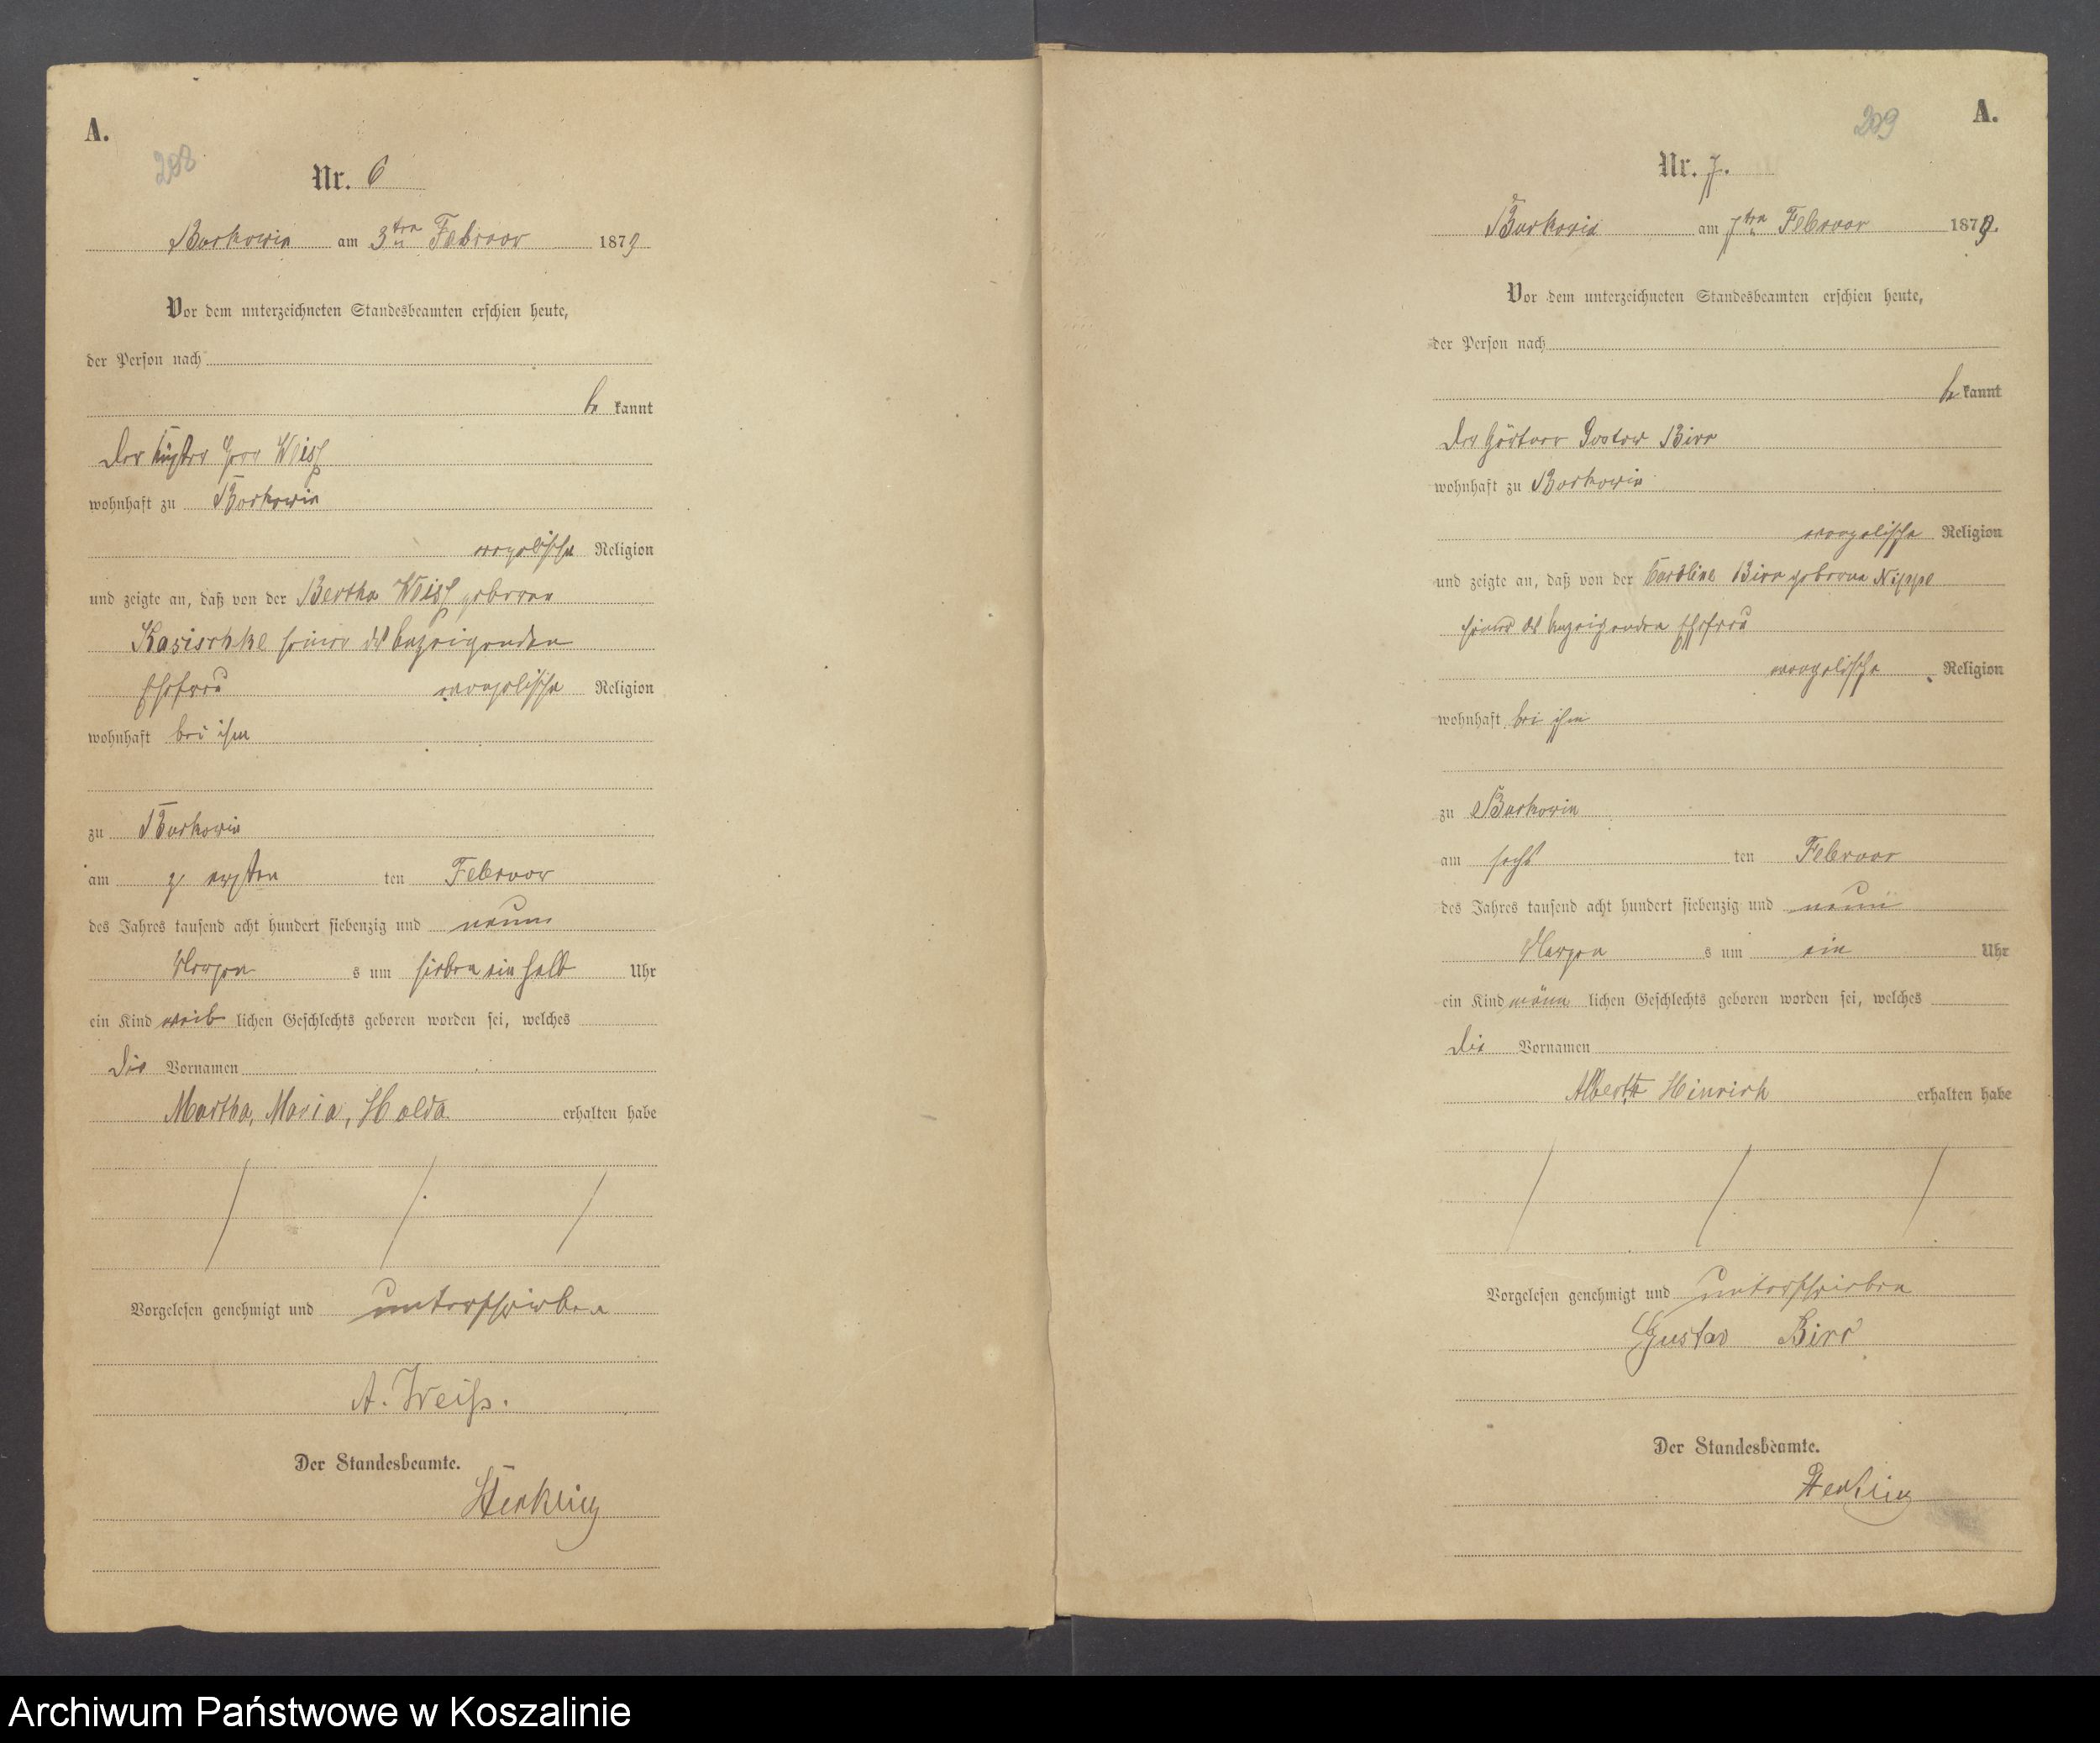 A.
208
Nr. 6
Barkowin am 3ten Februar 1879
Vor dem unterzeichneten Standesbeamten erschien heute,
der Person nach
be kannt
Der Küster Herr Weiß
wohnhaft zu Barkowin
evangelischer Religion
und zeigte an, daß von der Bertha Weiß geborene
Kasischke seiner des Anzeigenden
Ehefrau evangelischer Religion
wohnhaft bei ihm
zu Barkowin
am ersten ten Februar
des Jahres tausend acht hundert siebenzig und neun
Morgen s um sieben ein halb Uhr
ein Kind weib lichen Geschlechts geboren worden sei, welches
die Vornamen
Martha, Maria, Hulda erhalten habe
Vorgelesen genehmigt und unterschrieben
A. Weiß.
Der Standesbeamte.
A.
209
Nr. 7.
Barkowin am 7ten Februar 1879.
Vor dem unterzeichneten Standesbeamten erschien heute,
der Person nach
be kannt
Der Gärtner Gustav Birr
wohnhaft zu Barkowin
evangelischer Religion
und zeigte an, daß von der Caroline Birr geborene Nippe
seiner des Anzeigenden Ehefrau
evangelischer Religion
wohnhaft bei ihm
zu Barkowin
am sechs ten Februar
des Jahres tausend acht hundert siebenzig und neun
Morgen s um ein Uhr
ein Kind männ lichen Geschlechts geboren worden sei, welches
die Vornamen
Albert Hinrich erhalten habe
Vorgelesen genehmigt und unterschrieben
Gustav Birr
Der Standesbeamte.
Archiwum Państwowe w Koszalinie